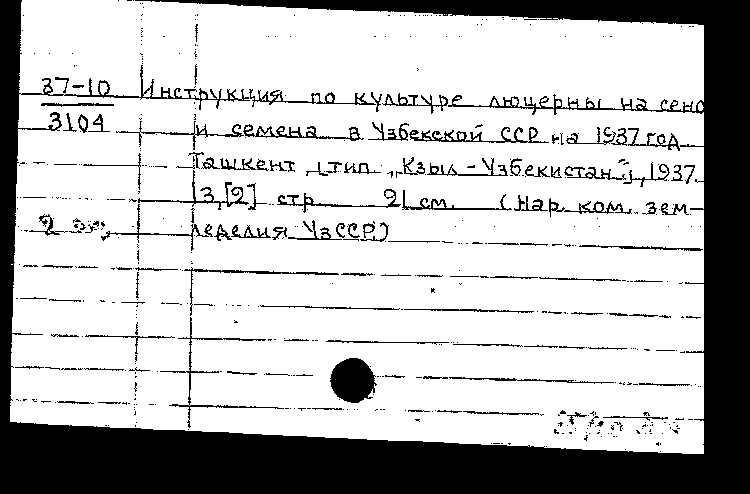 37-10 Инструкция по культуре люцерны на сено
3104 и семена в Узбекской ССР на 1937 год.
Ташкент, [тип. "Кзыл-Узбекистан"], 1937.
13,[2] стр. 21 см. (Нар. ком. зем-
2 экз. леделия УзССР)